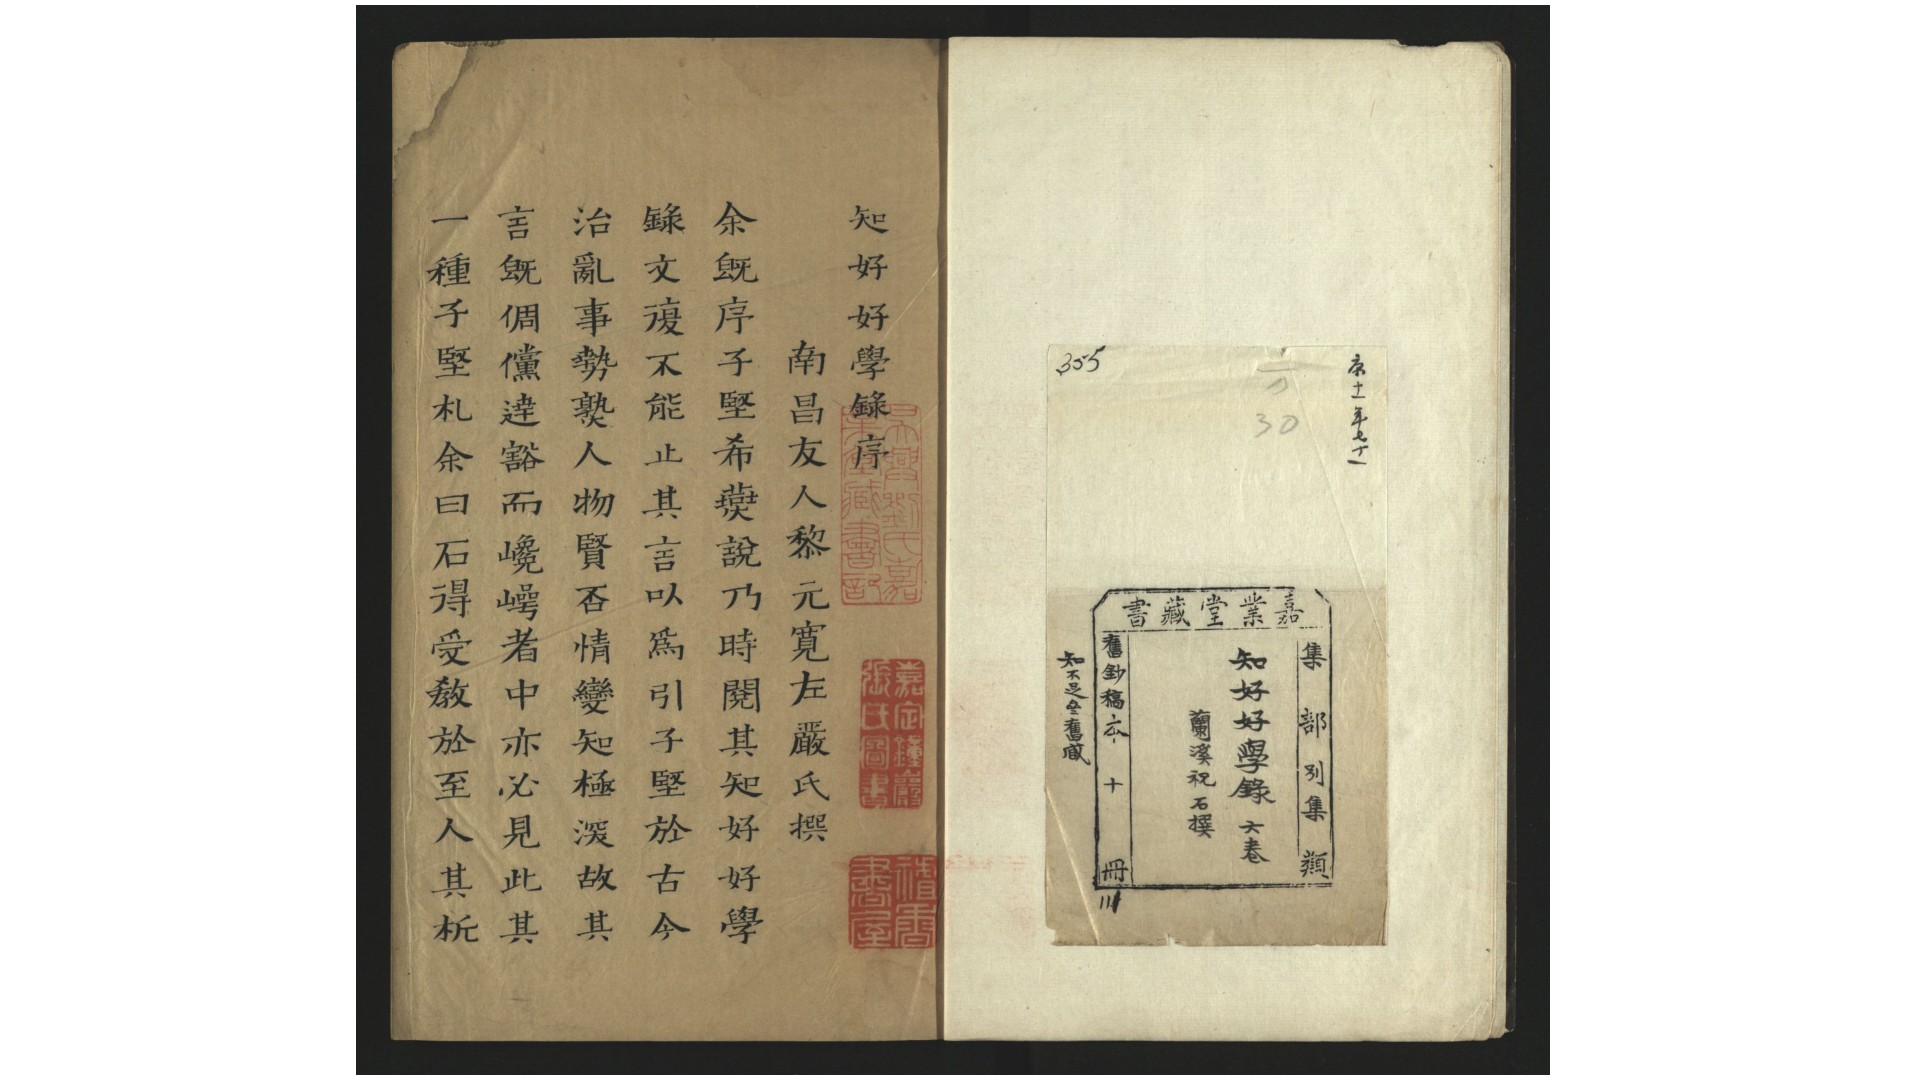 355
30
嘉業堂藏書
集部別集類
知好好學錄六卷
蘭溪祝石撰
舊鈔稿本十冊
知不足
舊藏
知好好學錄序
南昌友人黎元寬左嚴氏撰
余旣序子堅希燕說乃時閱其知好好學
錄文復不能止其言以爲引子堅於古今
治亂事勢熟人物賢否情變知極深故其
言旣倜儻達豁而巉崿者中亦必見此其
一種子堅札余曰石得受敎於至人其析
吳興劉氏嘉
業堂藏書記
嘉定鍾巖
張氏圖書
惜香
書屋